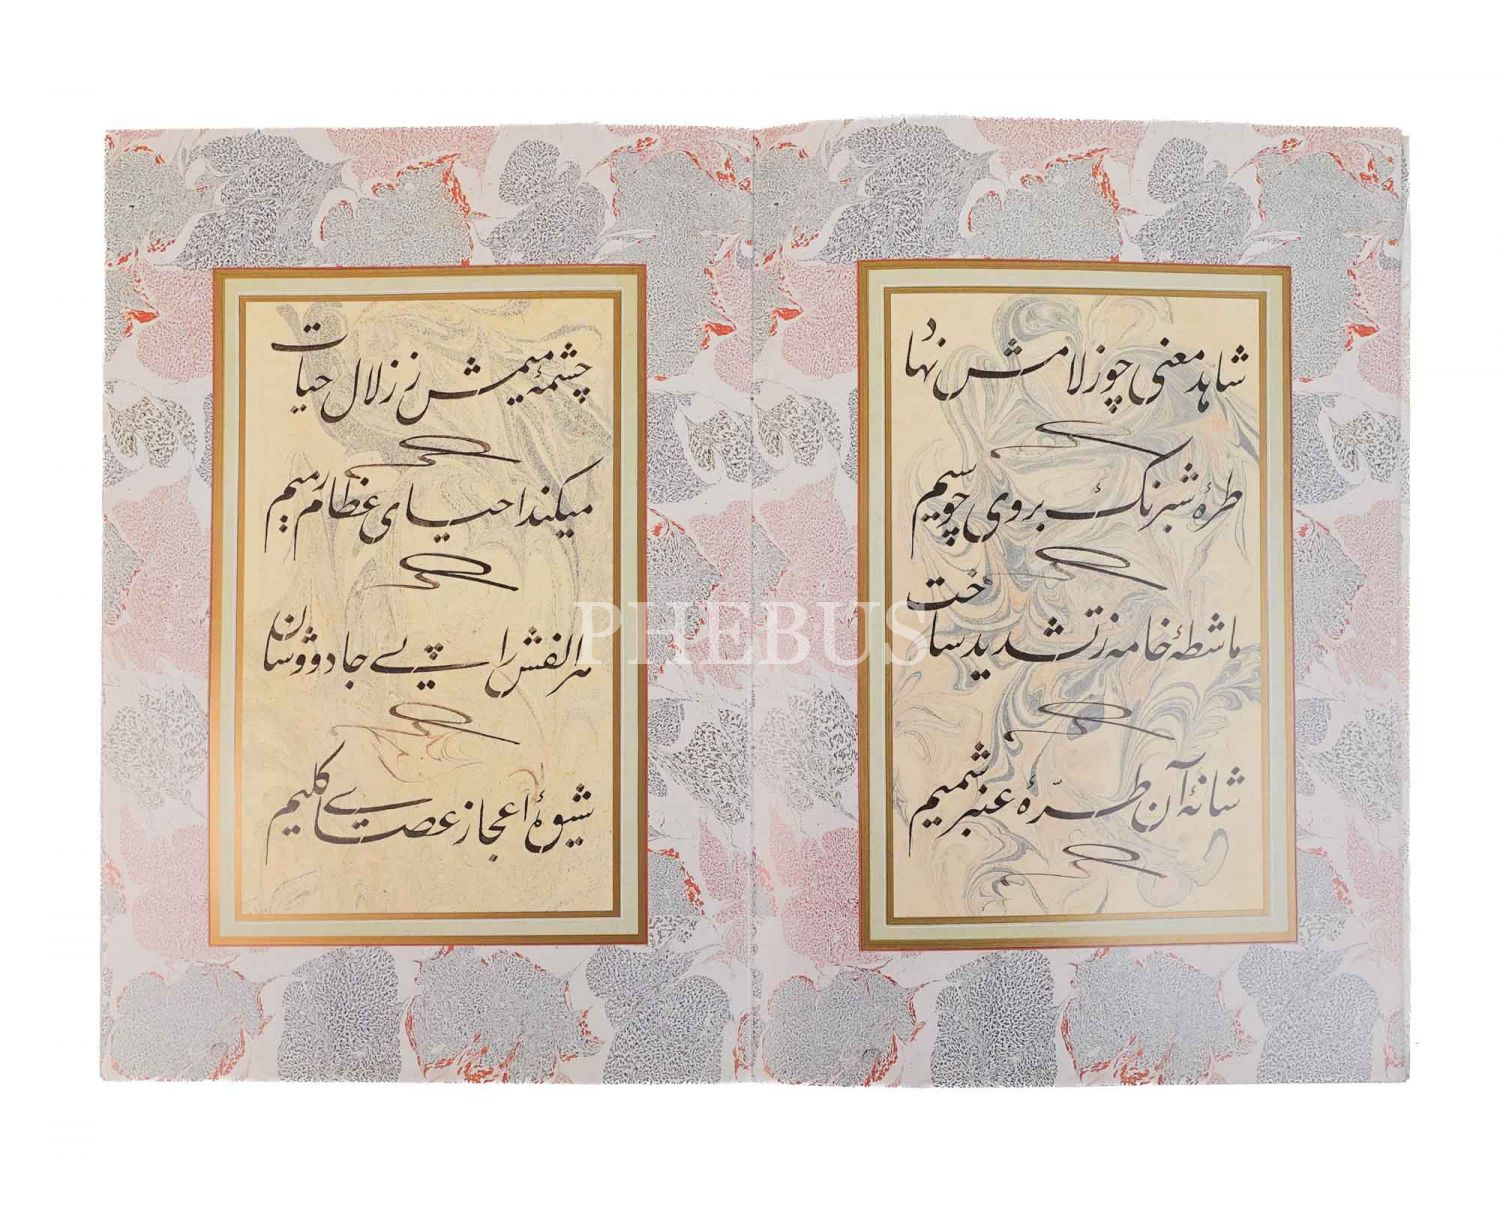 شاهد معنی چو ز لامش نهاد
طرهٔ شبرنگ بروی چو سیم
ماشطهٔ خامه ز تشدید ساخت
شانهٔ آن طرّهٔ عنبر شمیم
چشمهٔ میمش ز زلال حیات
میکند احیای عظام رمیم
هر الفش را پی جادووشان
شیوهٔ اعجاز عصای کلیم
PHEBUS